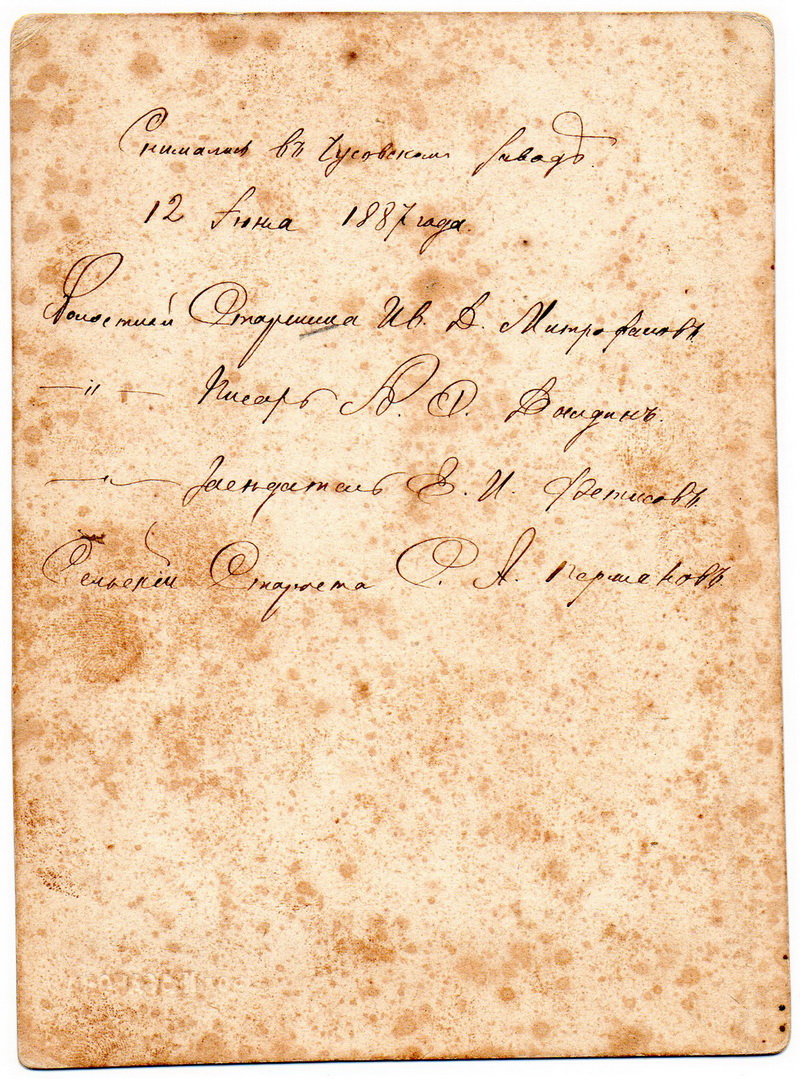 Снимались въ Чусовскомъ заводѣ.
12 Іюня 1887 года.
Волостной Старшина Ив. В. Митрофановъ.
—〃— Писарь А. О.
—〃— Засѣдатель Е. И. Фетисовъ.
Сельскій Староста С. А. Пермяковъ